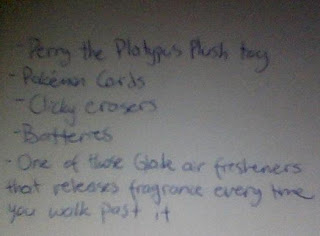 - Perry the Platypus Plush toy
- Pokémon Cards
- Clicky erasers
- Batteries
- One of those Glade air fresheners
that releases fragrance every time
you walk past it